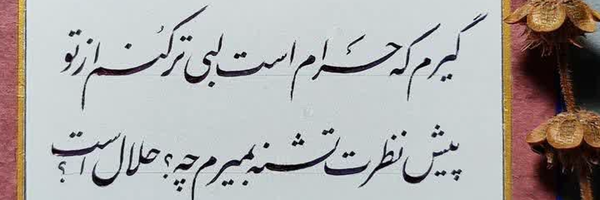 گیرم که حرام است لبی تر کنم از تو
پیش نظرت تشنه بمیرم چه؟ حلال است؟